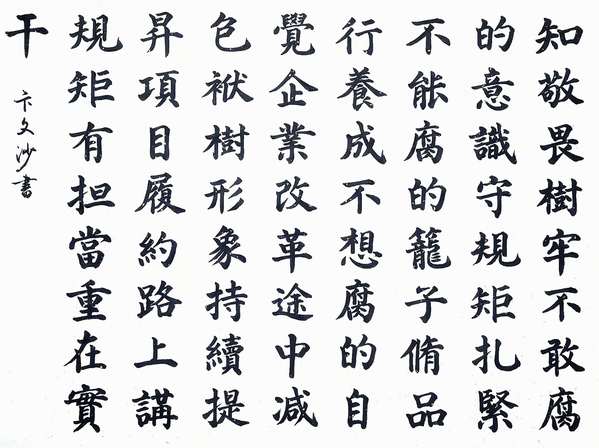 知敬畏樹牢不敢腐
的意識守規矩扎緊
不能腐的籠子脩品
行養成不想腐的自
覺企業改革途中减
色袱樹形象持續提
昇項目履約路上講
規矩有担當重在實
干
卞文沙書